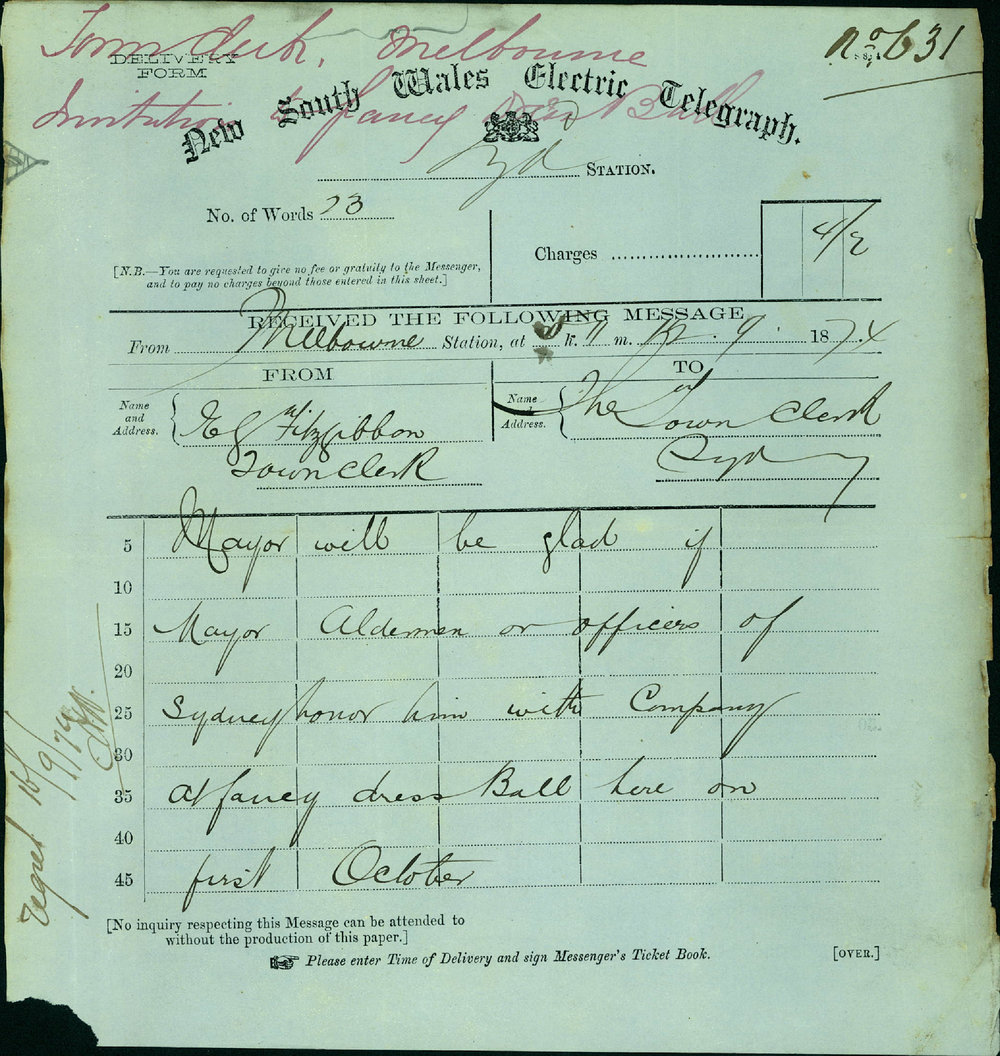 Town Clerk, Melbourne
DELIVERY
FORM
No 631
Invitation to fancy Dress Ball
New South Wales Electric Telegraph.
Syd STATION.
No. of Words 23
Charges 4/2
[N.B.—You are requested to give no fee or gratuity to the Messenger,
and to pay no charges beyond those entered in this sheet.]
RECEIVED THE FOLLOWING MESSAGE
From Melbourne Station, at h. 11 m. 12 . 9 . 1874
FROM
TO
Name
and
Address.
E G Fitzgibbon
Town Clerk
Name
and
Address.
The Town Clerk
Sydney
5 Mayor will be glad if
10
15 Mayor Aldermen or officers of
20
25 Sydney honor him with Company
30
35 at fancy dress Ball here on
40
45 first October
regret 16/9/74
[No inquiry respecting this Message can be attended to
without the production of this paper.]
Please enter Time of Delivery and sign Messenger's Ticket Book.
[OVER.]